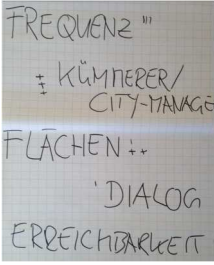 FREQUENZ !!!
+++ KÜMMERER/
CITY-MANAGE
FLÄCHEN ++
DIALOG
ERREICHBARKEIT